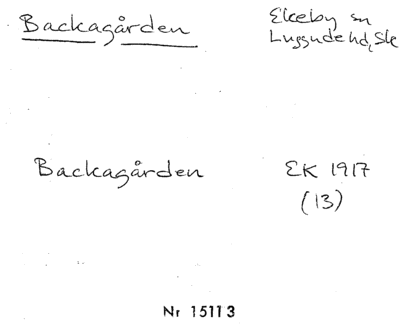 Backagården
Ekeby sn
Luggude hd, Sk
Backagården
EK 1917
(13)
Nr 15113